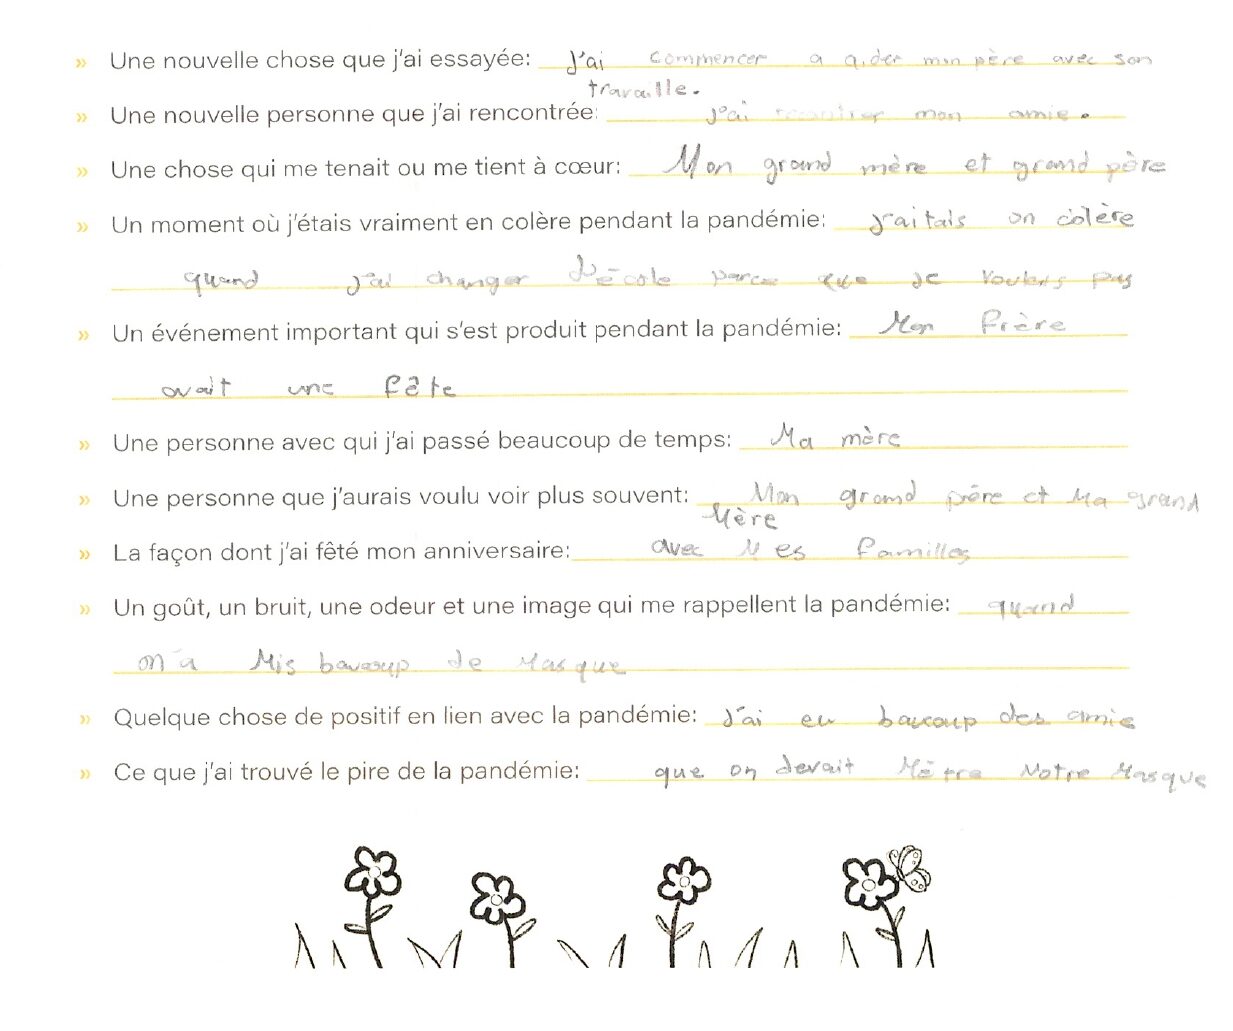 » Une nouvelle chose que j'ai essayée: J'ai commencer a aider mon père avec son
travaille.
» Une nouvelle personne que j'ai rencontrée: j'ai mon amie.
» Une chose qui me tenait ou me tient à cœur: Mon grand mère et grand père
» Un moment où j'étais vraiment en colère pendant la pandémie: j'aitais on colère
quand j'ai changer d'école parce que je voulais pas
» Un événement important qui s'est produit pendant la pandémie: Mon frère
avait une fête
» Une personne avec qui j'ai passé beaucoup de temps: Ma mère
» Une personne que j'aurais voulu voir plus souvent: Mon grand père et Ma grand
Mère
» La façon dont j'ai fêté mon anniversaire: avec Mes familles
» Un goût, un bruit, une odeur et une image qui me rappellent la pandémie: quand
on a Mis baucoup de Masque
» Quelque chose de positif en lien avec la pandémie: J'ai eu baucoup des amie
» Ce que j'ai trouvé le pire de la pandémie: que on devait Mètre Notre Masque